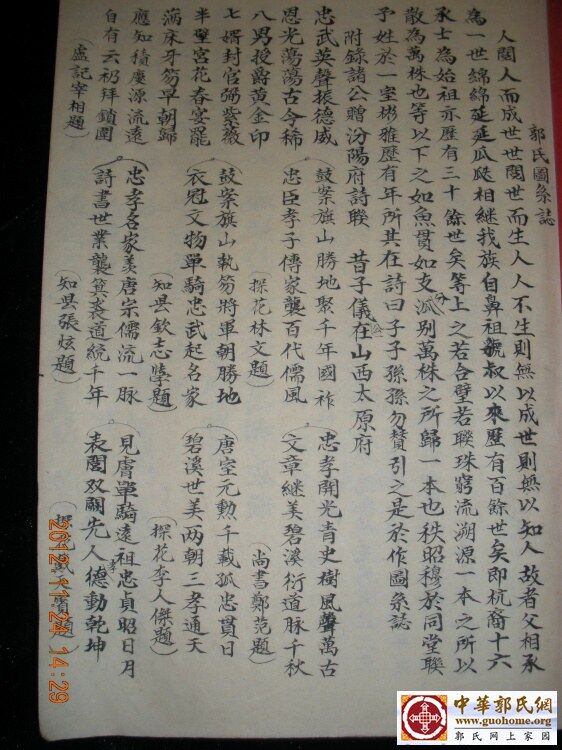 郭氏圖系誌
人閱人而成世世閱世而生人人不生則無以成世世則無以知人故者父相承
為一世綿綿延延瓜瓞相継我族自鼻祖虢叔以來歷有百餘世矣即杭裔十六
承士為始祖亦歷有三十餘世矣等上之若合璧若聯珠窮流溯源一本之所以
散為萬株也等以下之如魚貫如支派分別萬株之所歸一本也秩昭穆於同堂聯
予姓於一室彬雅歷有年所其在詩曰子子孫孫勿替引之是於作圖系誌
附錄諸公贈汾陽府詩聯 昔子儀公在山西太原府
忠武英聲振德威
恩光蕩蕩古今稀
八男授爵黃金印
七婿封官弼紫薇
半壁宮花春宴罷
滿床牙笏早朝歸
應知積慶源流遠
自有云礽拜鎖闈
(盧記宰相題)
鼓案旗山勝地聚千年國祚
忠臣孝子傳家襲百代儒風
(探花林文題)
鼓案旗山執笏將軍朝勝地
衣冠文物單騎忠武起名家
(知县欽志學題)
忠孝名家美唐宗儒流一脉
詩書世業襲箕裘道統千年
(知县張炫題)
忠孝開光青史樹風聲萬古
文章継美碧溪衍道脉千秋
(尚書鄭范題)
唐室元勳千載孤忠貫日
碧溪世美兩朝三孝通天
(探花李人傑題)
見膚單騎遠祖忠貞昭日月
表閭双闕先人孝德動乾坤
2012.11.24 14:29
中華郭氏網
www.guohome.org
郭氏網上家園